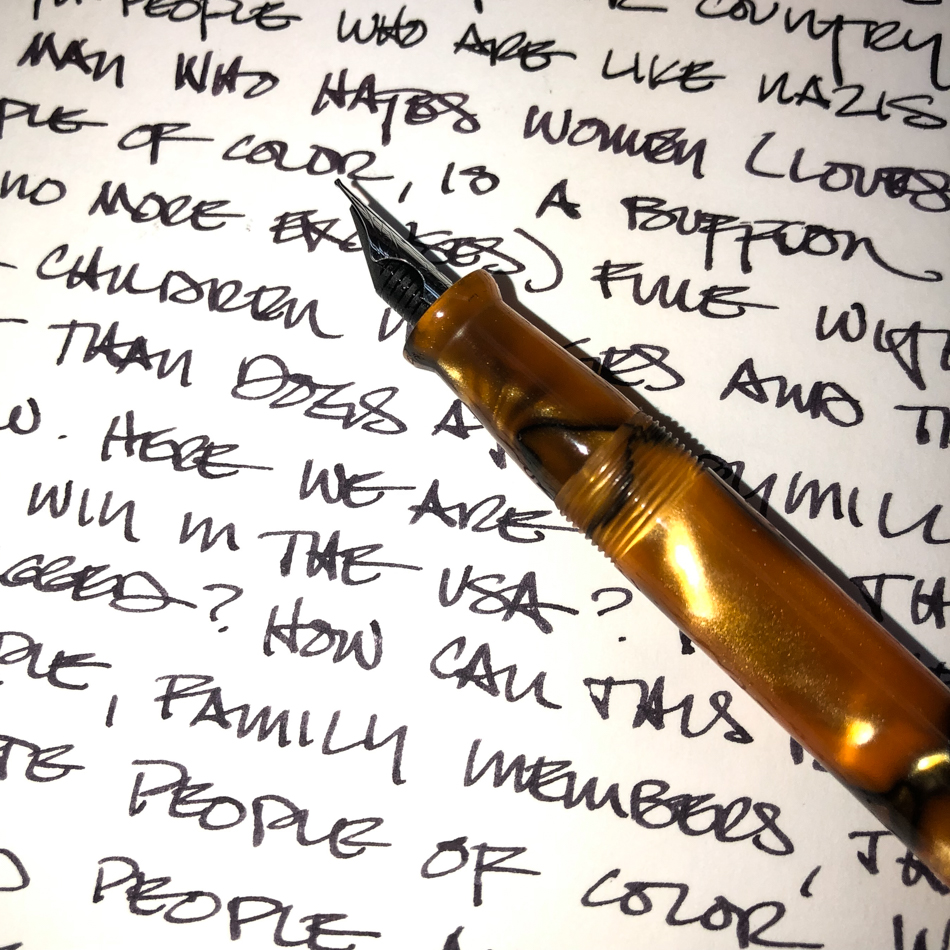 PEOPLE WHO ARE LIKE NAZIS
COUNTRY
MAN WHO HATES WOMEN (LOVES
PLE OF COLOR, IS A BUFFOON
NO MORE EXCUSES) FULL WITH
CHILDREN AND TH
THAN DOGS
W. HERE WE ARE
WIN IN THE USA? TH
GGED? HOW CAN THIS
PLE, FAMILY MEMBERS, TH
TE PEOPLE OF COLOR
D PEOPLE